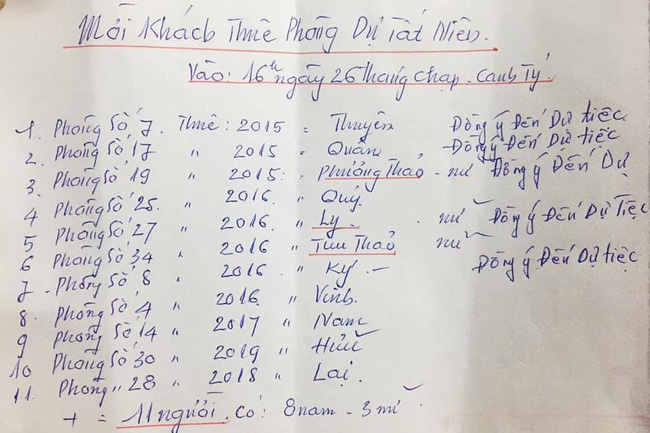 Mời Khách Thuê Phòng Dự Tất Niên.
Vào: 16h ngày 26 Tháng chạp - Canh Tý.
1. Phòng Số 7. Thuê: 2015 = Thuyên Đồng ý Đến Dự tiệc
2. Phòng Số 17 " 2015 " Quân Đồng ý Đến Dự tiệc
3. Phòng Số 19 " 2015: Phương Thảo - nữ Đồng ý Đến Dự
4 Phòng Số 25. " 2016. " Quý.
5 Phòng Số 27 " 2016. " Ly. nữ Đồng ý Đến Dự Tiệc
6 Phòng Số 34 " 2016 " Thu Thảo nữ
7 - Phòng Số 8 " 2016. " Ký - Đồng ý Đến Dự tiệc
8. Phòng Số 4 " 2016 " Vinh.
9 Phòng Số 14 " 2017 " Nam
10 Phòng Số 30 " 2019 " Hữu
11. Phòng " 28 " 2018 " Lại.
+ = 11 người. Có: 8 nam - 3 nữ.